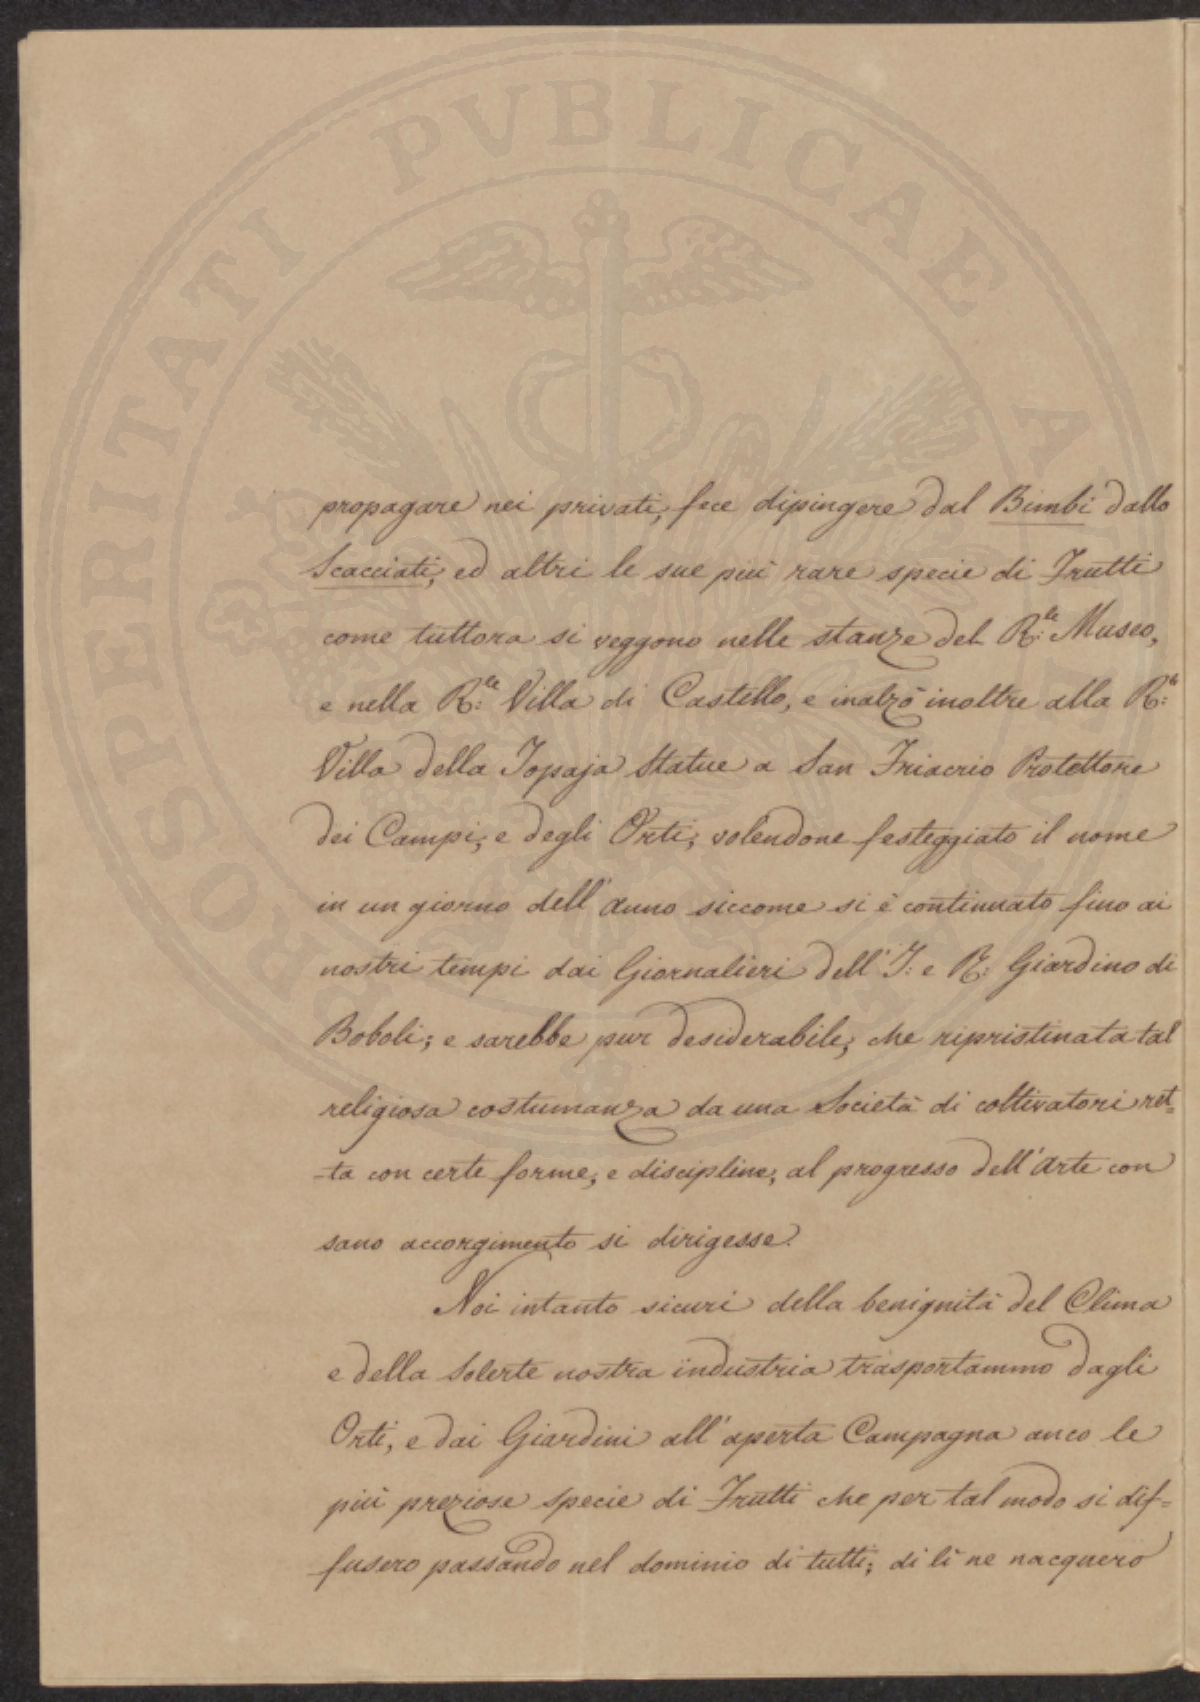 PROSPERITATI PVBLICAE A
propagare nei privati, fece dipingere dal Bimbi dallo
Scacciati, ed altri le sue piú rare specie di Frutti
come tuttora si veggono nelle stanze del R:le Museo,
e nella R:le Villa di Castello, e inalzò inoltre alla R:le
Villa della Topaja Statue a San Friacrio Protettore
dei Campi, e degli Orti, volendone festeggiato il nome
in un giorno dell'anno siccome si è continuato fino ai
nostri tempi dai Giornalieri dell'I: e R: Giardino di
Boboli; e sarebbe pur desiderabile, che ripristinata tal
religiosa costumanza da una Società di coltivatori ret=
=ta con certe forme, e discipline, al progresso dell'Arte con
sano accorgimento si dirigesse.
Noi intanto sicuri della benignità del Clima
e della Solerte nostra industria trasportammo dagli
Orti, e dai Giardini all'aperta Campagna anco le
più preziose specie di Frutti che per tal modo si dif=
fusero passando nel dominio di tutti; di lì ne nacquero